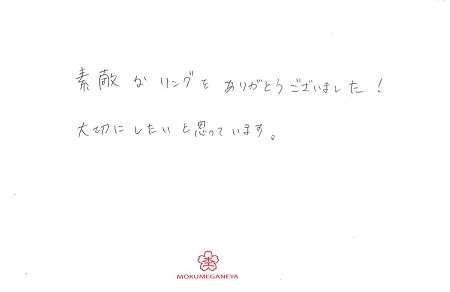 素敵なリングをありがとうございました！
大切にしたいと思っています。
MOKUMEGANEYA